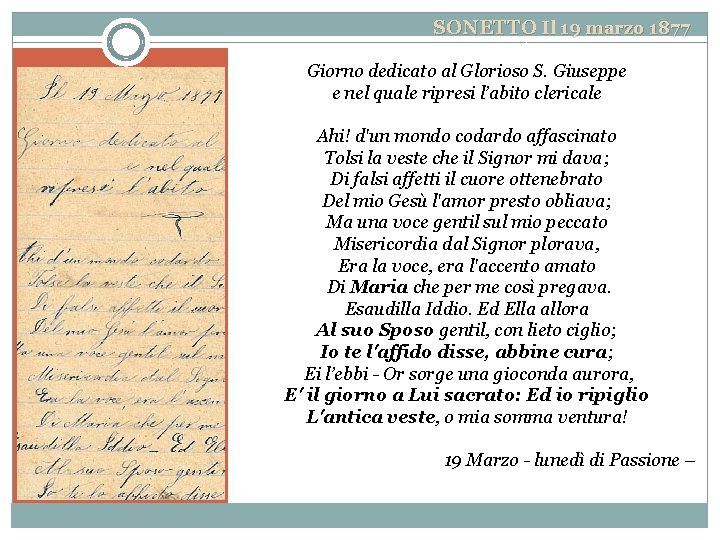 SONETTO Il 19 marzo 1877
Il 19 Marzo 1877
Giorno dedicato al
e nel quale
ripresi l'abito
Ahi d'un mondo codardo
Tolsi la veste che il S
Di falsi affetti il cuor
Del mio Gesù l'amor pre
Ma una voce gentil sul m
Misericordia dal Sign
Era la voce, era l'accen
Di Maria che per me
saudilla Iddio_ Ed Ell
Al suo Sposo gentil
Io te lo affido disse
Giorno dedicato al Glorioso S. Giuseppe
e nel quale ripresi l'abito clericale
Ahi! d'un mondo codardo affascinato
Tolsi la veste che il Signor mi dava;
Di falsi affetti il cuore ottenebrato
Del mio Gesù l'amor presto obliava;
Ma una voce gentil sul mio peccato
Misericordia dal Signor plorava,
Era la voce, era l'accento amato
Di Maria che per me così pregava.
Esaudilla Iddio. Ed Ella allora
Al suo Sposo gentil, con lieto ciglio;
Io te l'affido disse, abbine cura;
Ei l'ebbi - Or sorge una gioconda aurora,
E' il giorno a Lui sacrato: Ed io ripiglio
L'antica veste, o mia somma ventura!
19 Marzo - lunedì di Passione –